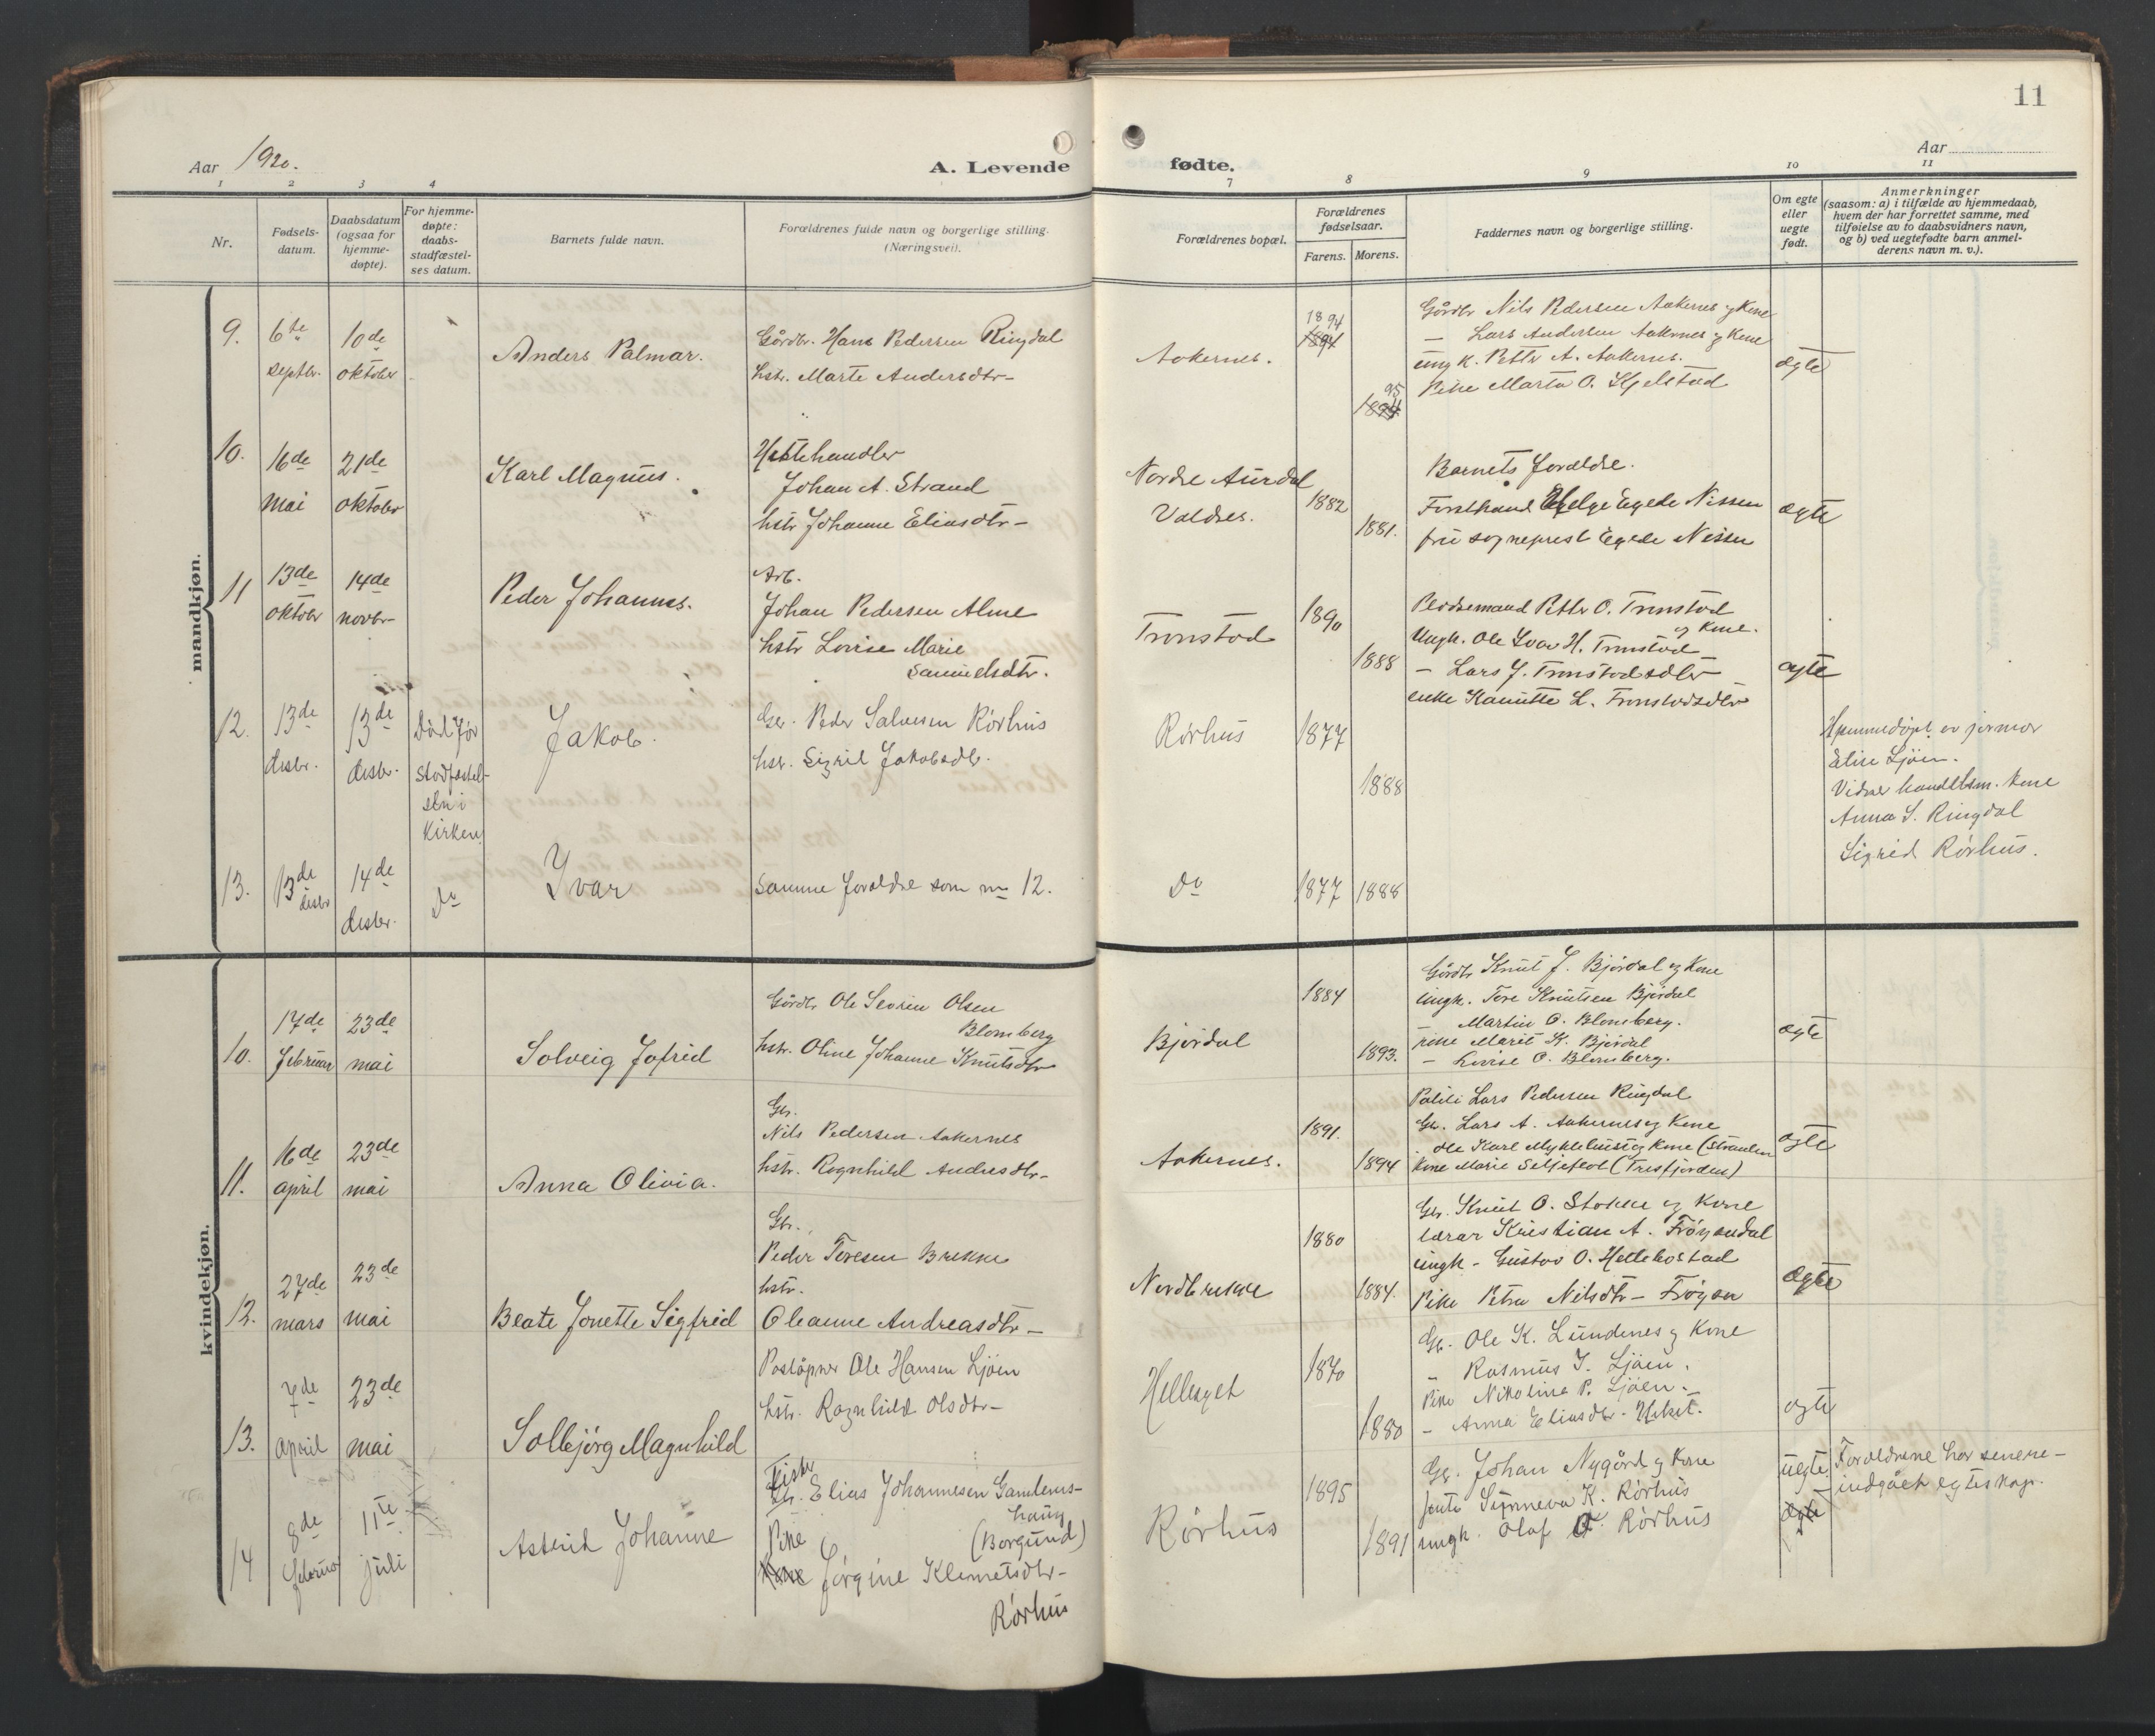 11
Aar 1920.
A. Levende
fødte.
Aar
1 2 3 4
7 8 9 10 11
Nr.
Fødsels-
datum.
Daabsdatum
(ogsaa for
hjemme-
døpte).
For hjemme-
døpte:
daabs-
stadfæstel-
ses datum.
Barnets fulde navn.
Forældrenes fulde navn og borgerlige stilling.
(Næringsvei).
Forældrenes bopæl.
Forældrenes
fødselsaar.
Farens. Morens.
Faddernes navn og borgerlige stilling.
Om egte
eller
uegte
født.
Anmerkninger
(saasom: a) i tilfælde av hjemmedaab,
hvem der har forrettet samme, med
tilføielse av to daabsvidners navn,
og b) ved uegtefødte barn anmel-
derens navn m. v.).
mandkjøn.
9.
6te
septbr.
10de
oktober
Anders Palmar.
Gårdbr. Hans Pedersen Ringdal
hstr. Marte Andersdtr-
Aakernes.
1894
1894
95
Gårdbr Nils Pedersen Aakernes og Kone
- Lars Andersen Aakernes og Kone
ung k. Petter A. Aakernes.
Pike Marta O. Kjelstad
ægte
10.
16de
mai
21de
oktober
Karl Magnus.
Hestehandler
Johan A. Strand
hstr Johanne Eliasdtr-
Nordre Aurdal
Valdres.
1882
1881.
Barnets forældre.
Helge Egede Nissen
fru sogneprest Egede Nissen
ægte
11
13de
oktober
14de
novbr-
Peder Johannes.
Arb.
Johan Pedersen Alme
hstr Lovise Marie
Samuelsdtr.
Tronstad
1890
1888
Petter O. Tronstad
og Kone.
Ungk. Ole Ivar H. Tronstad
- Lars J. Tronstadsdtr
enke L. Tronstadsdtr
ægte
12.
13de
desbr.
13de
desbr.
Død før
stadfæstel-
sen i
Kirken
Jakob.
Gbr. Peder Salvesen Rørhus
hstr. Sigrid Jakobsdtr.
Rørhus
1877
1888
Hjemmedøpt av jormor
Elise Ljøen.
Vidner handelsm. Kone
Anna S. Ringdal
Sigrid Rørhus.
13.
13de
desbr
14de
desbr.
Do
Ivar
Samme forældre som no 12.
Do
1877
1888
kvindekjøn.
10.
17de
februar
23de
mai
Solveig Jofrid
Gårdbr Ole Severin Olsen
Blomberg
hstr. Oline Johanne Knutsdtr
Bjørdal
1884
1893.
Gårdbr Knut J. Bjørdal og Kone
ungk. Tore Knutsen Bjørdal
Martin O. Blomberg.
pike Marit K. Bjørdal
- Lovise O. Blomberg.
ægte
11.
16de
april
23de
mai
Anna Olivia.
Gbr.
Nils Pedersen Aakernes
hstr. Ragnhild Andersdtr-
Aakernes.
1891.
1894
Politi Lars Pedersen Ringdal
Gbr. Lars A. Aakernes og Kone
Ole Karl Myklebust og Kone (Stranden
Kone Marie Seljeflot (Tresfjorden)
ægte
12.
27de
mars
23de
mai
Beate Jonette Sigfrid
Gbr.
Peder Toresen Brekke
hstr.
Oleanne Andreasdtr-
Nordbrekke
1880
1884.
Gbr. Knut O. Stokke og Kone
lærar Kristian A. Frøysendal
ungk - Gustav O. Hellebostad
Pike Petra Nilsdtr- Frøysa
ægte
13.
7de
april
23de
mai
Solbjørg Magnhild
Poståpner Ole Hansen Ljøen
hstr. Ragnhild Olsdtr-
Hellesyet
1870
1880
Gbr. Ole K. Lundenes og Kone
- Rasmus I. Ljøen.
Pike Nikoline P. Ljøen.
- Anna Eliasdtr.
ægte
14
8de
februar
11te
juli
Astrid Johanne
Fisker
Gbr. Elias Johannesen Gamlems-
haug
(Borgund)
Pike
Kone Jørgine Klemetsdtr-
Rørhus
Rørhus
1895
1891
Gbr. Johan Nygård og Kone
jente Synneva K. Rørhus
ungk. Olaf K. Rørhus
uegte
ægte
Foreldrene har senere-
indgået egteskap.